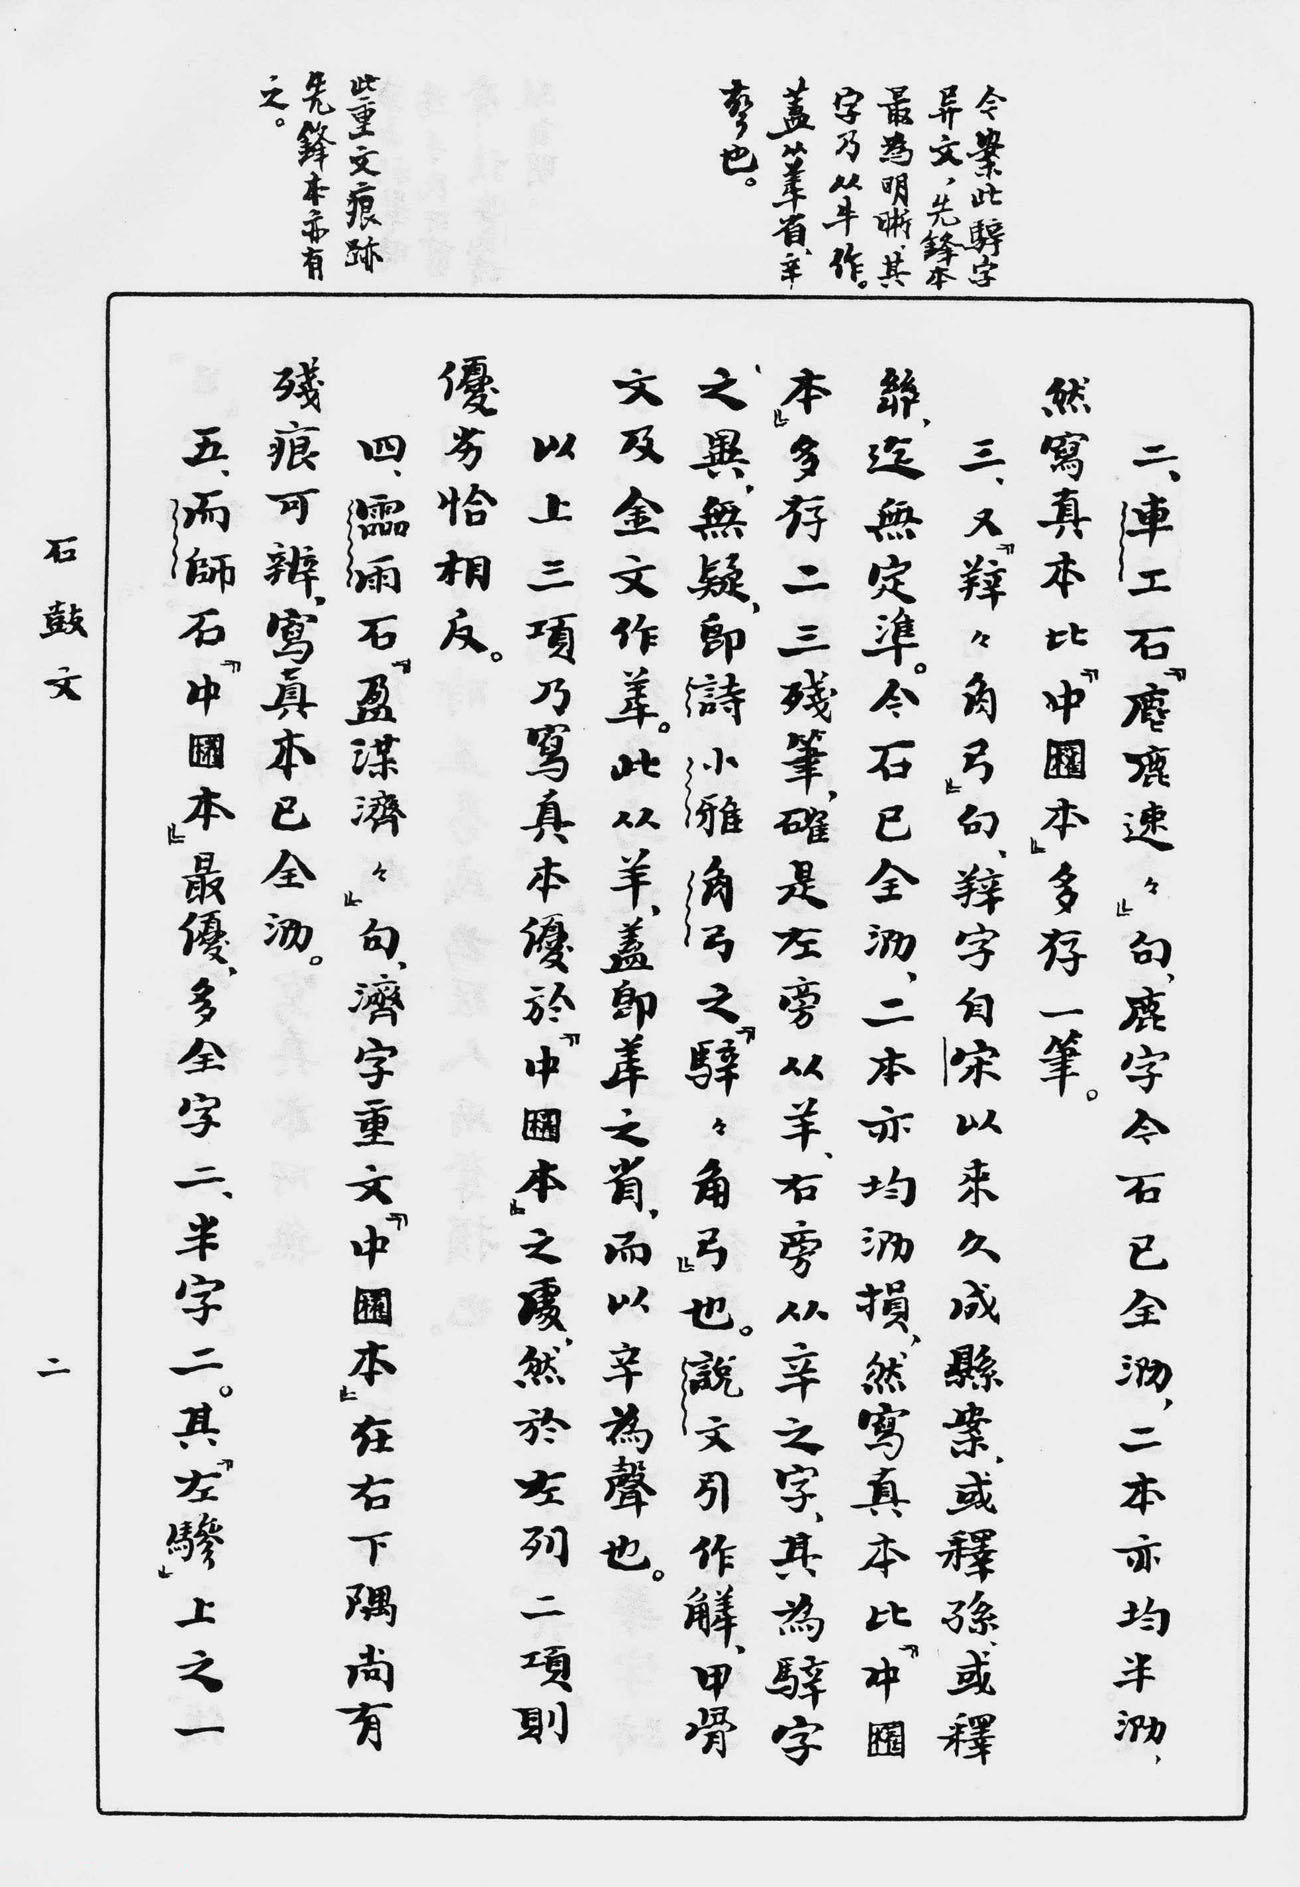 今案此騂字
异文，先鋒本
最為明晰，其
字乃从牛作。
蓋从𦍧省，辛
聲也。
此重文痕跡
先鋒本亦有
之。
二、車工石『麀鹿速々』句，鹿字今石已全泐，二本亦均半泐，
然寫真本比『中國本』多存一筆。
三、又『𦎧々角弓』句，𦎧字自宋以來久成縣案，或釋孫，或釋
䋣，迄無定準。今石已全泐，二本亦均泐損，然寫真本比『中國
本』多存二三殘筆，確是左旁从羊、右旁从辛之字，其為騂字
之異，無疑，即詩小雅角弓之『騂々角弓』也。說文引作觲，甲骨
文及金文作𦍧。此从羊，蓋即𦍧之省，而以辛為聲也。
以上三項乃寫真本優於『中國本』之處，然於左列二項則
優劣恰相反。
四、霝雨石『盈渫濟々』句，濟字重文『中國本』在右下隅尚有
殘痕可辨，寫真本已全泐。
五、而師石『中國本』最優，多全字二、半字二。其『左驂』上之一
石鼓文
二